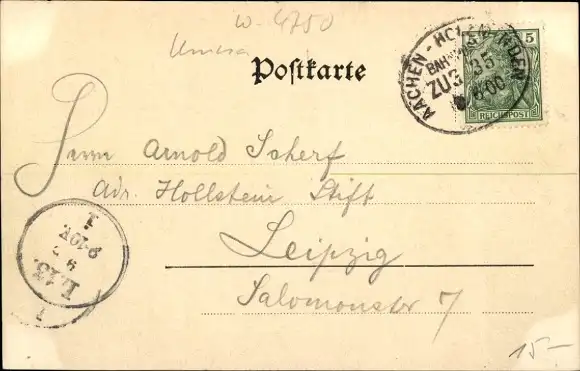 W-4750
Postkarte
AACHEN - HOLZMINDEN
BAHNPOST
ZUG 35
5
REICHSPOST
Herrn Arnold Scherf
Adr. Hollstein Stift
Leipzig
Salomonstr 7
L. 13.
15-